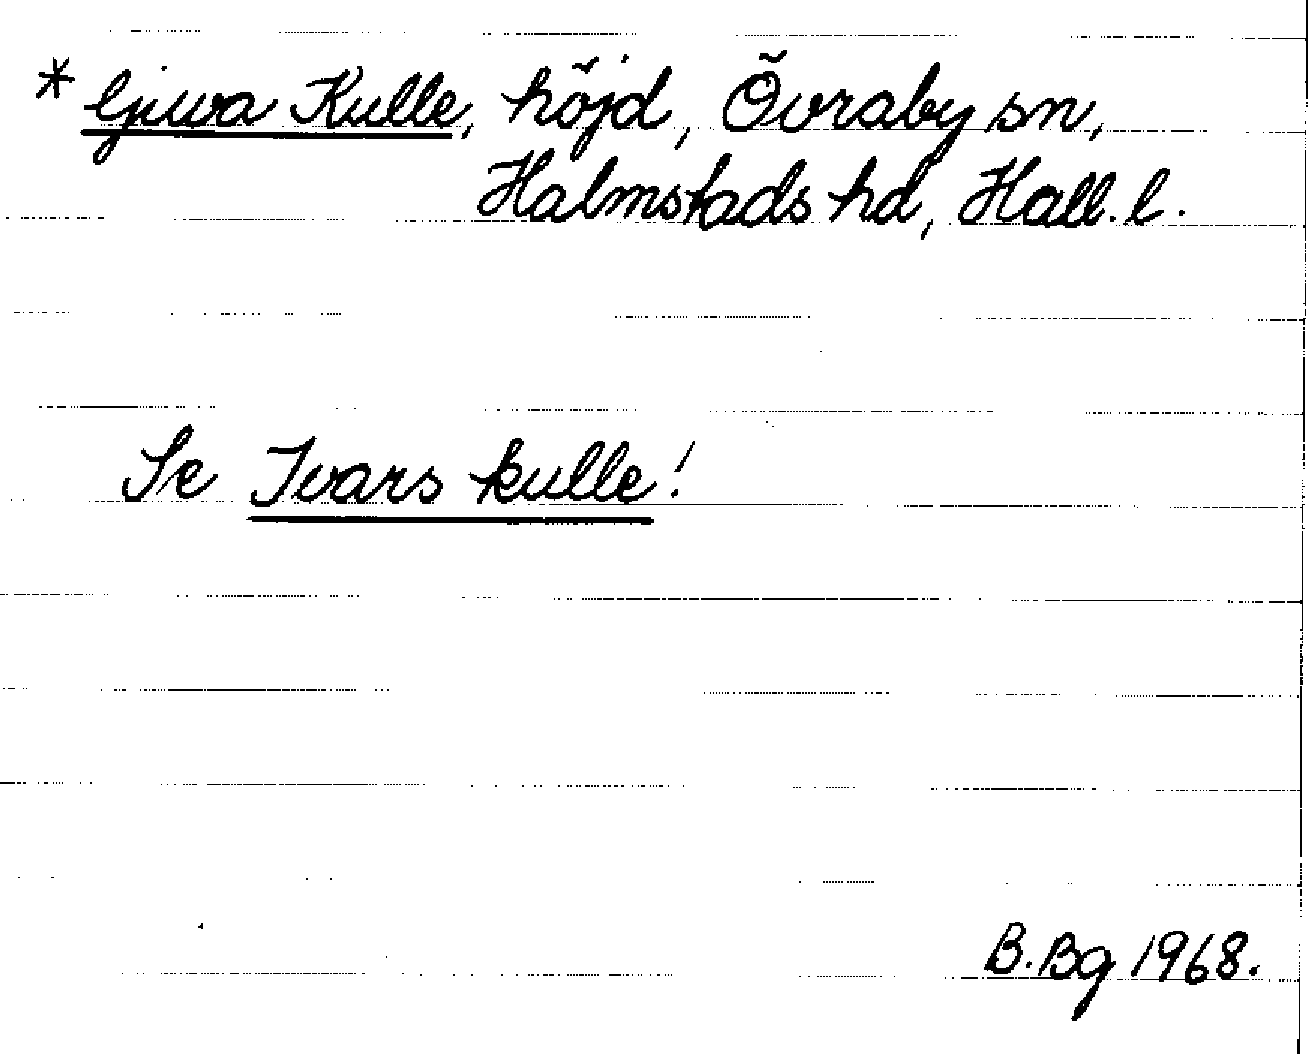 * Kulle, höjd, Övraby sn,
Halmstads hd, Hall. l.
Se Ivars kulle!
B.Bg 1968.